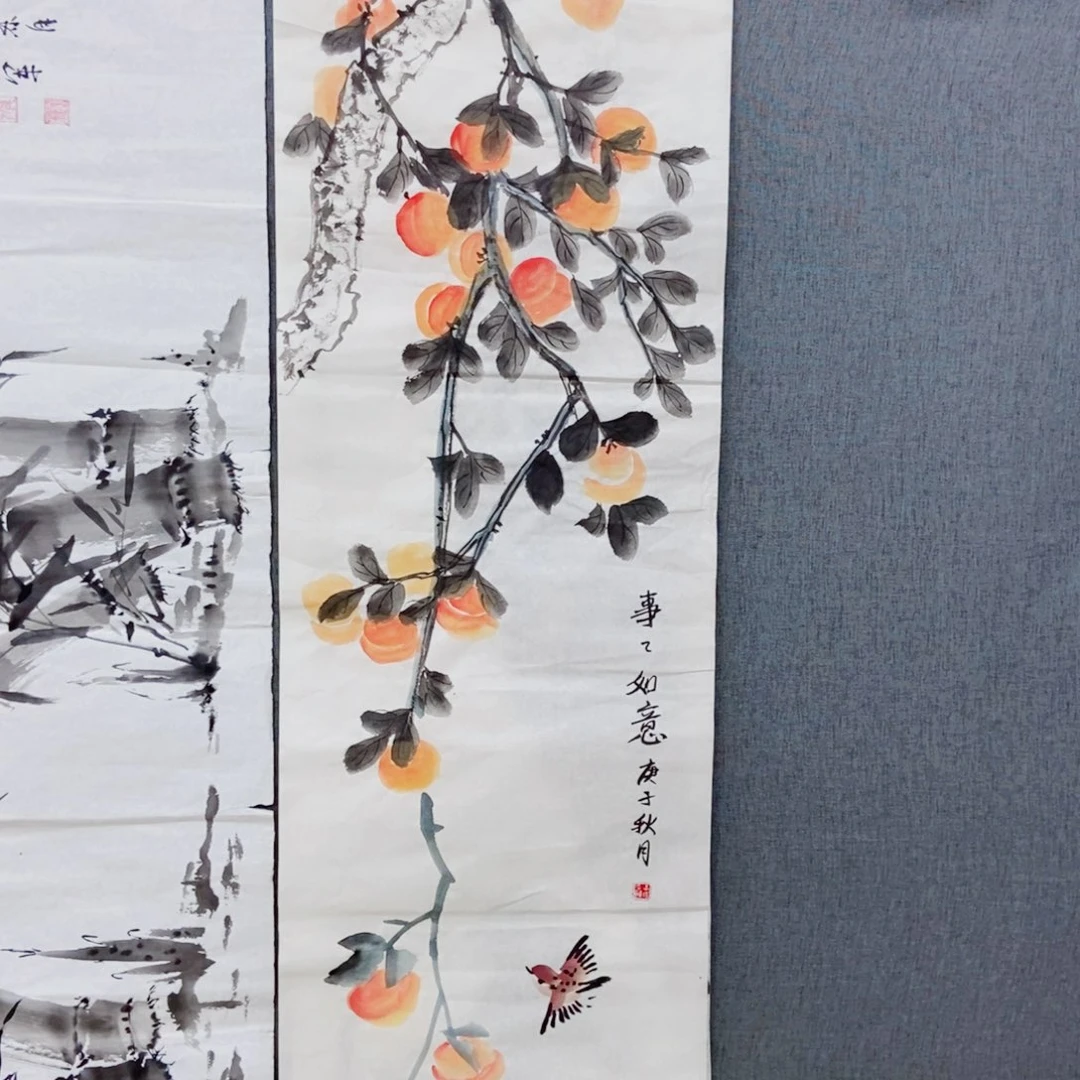 事〻如意 庚子秋月